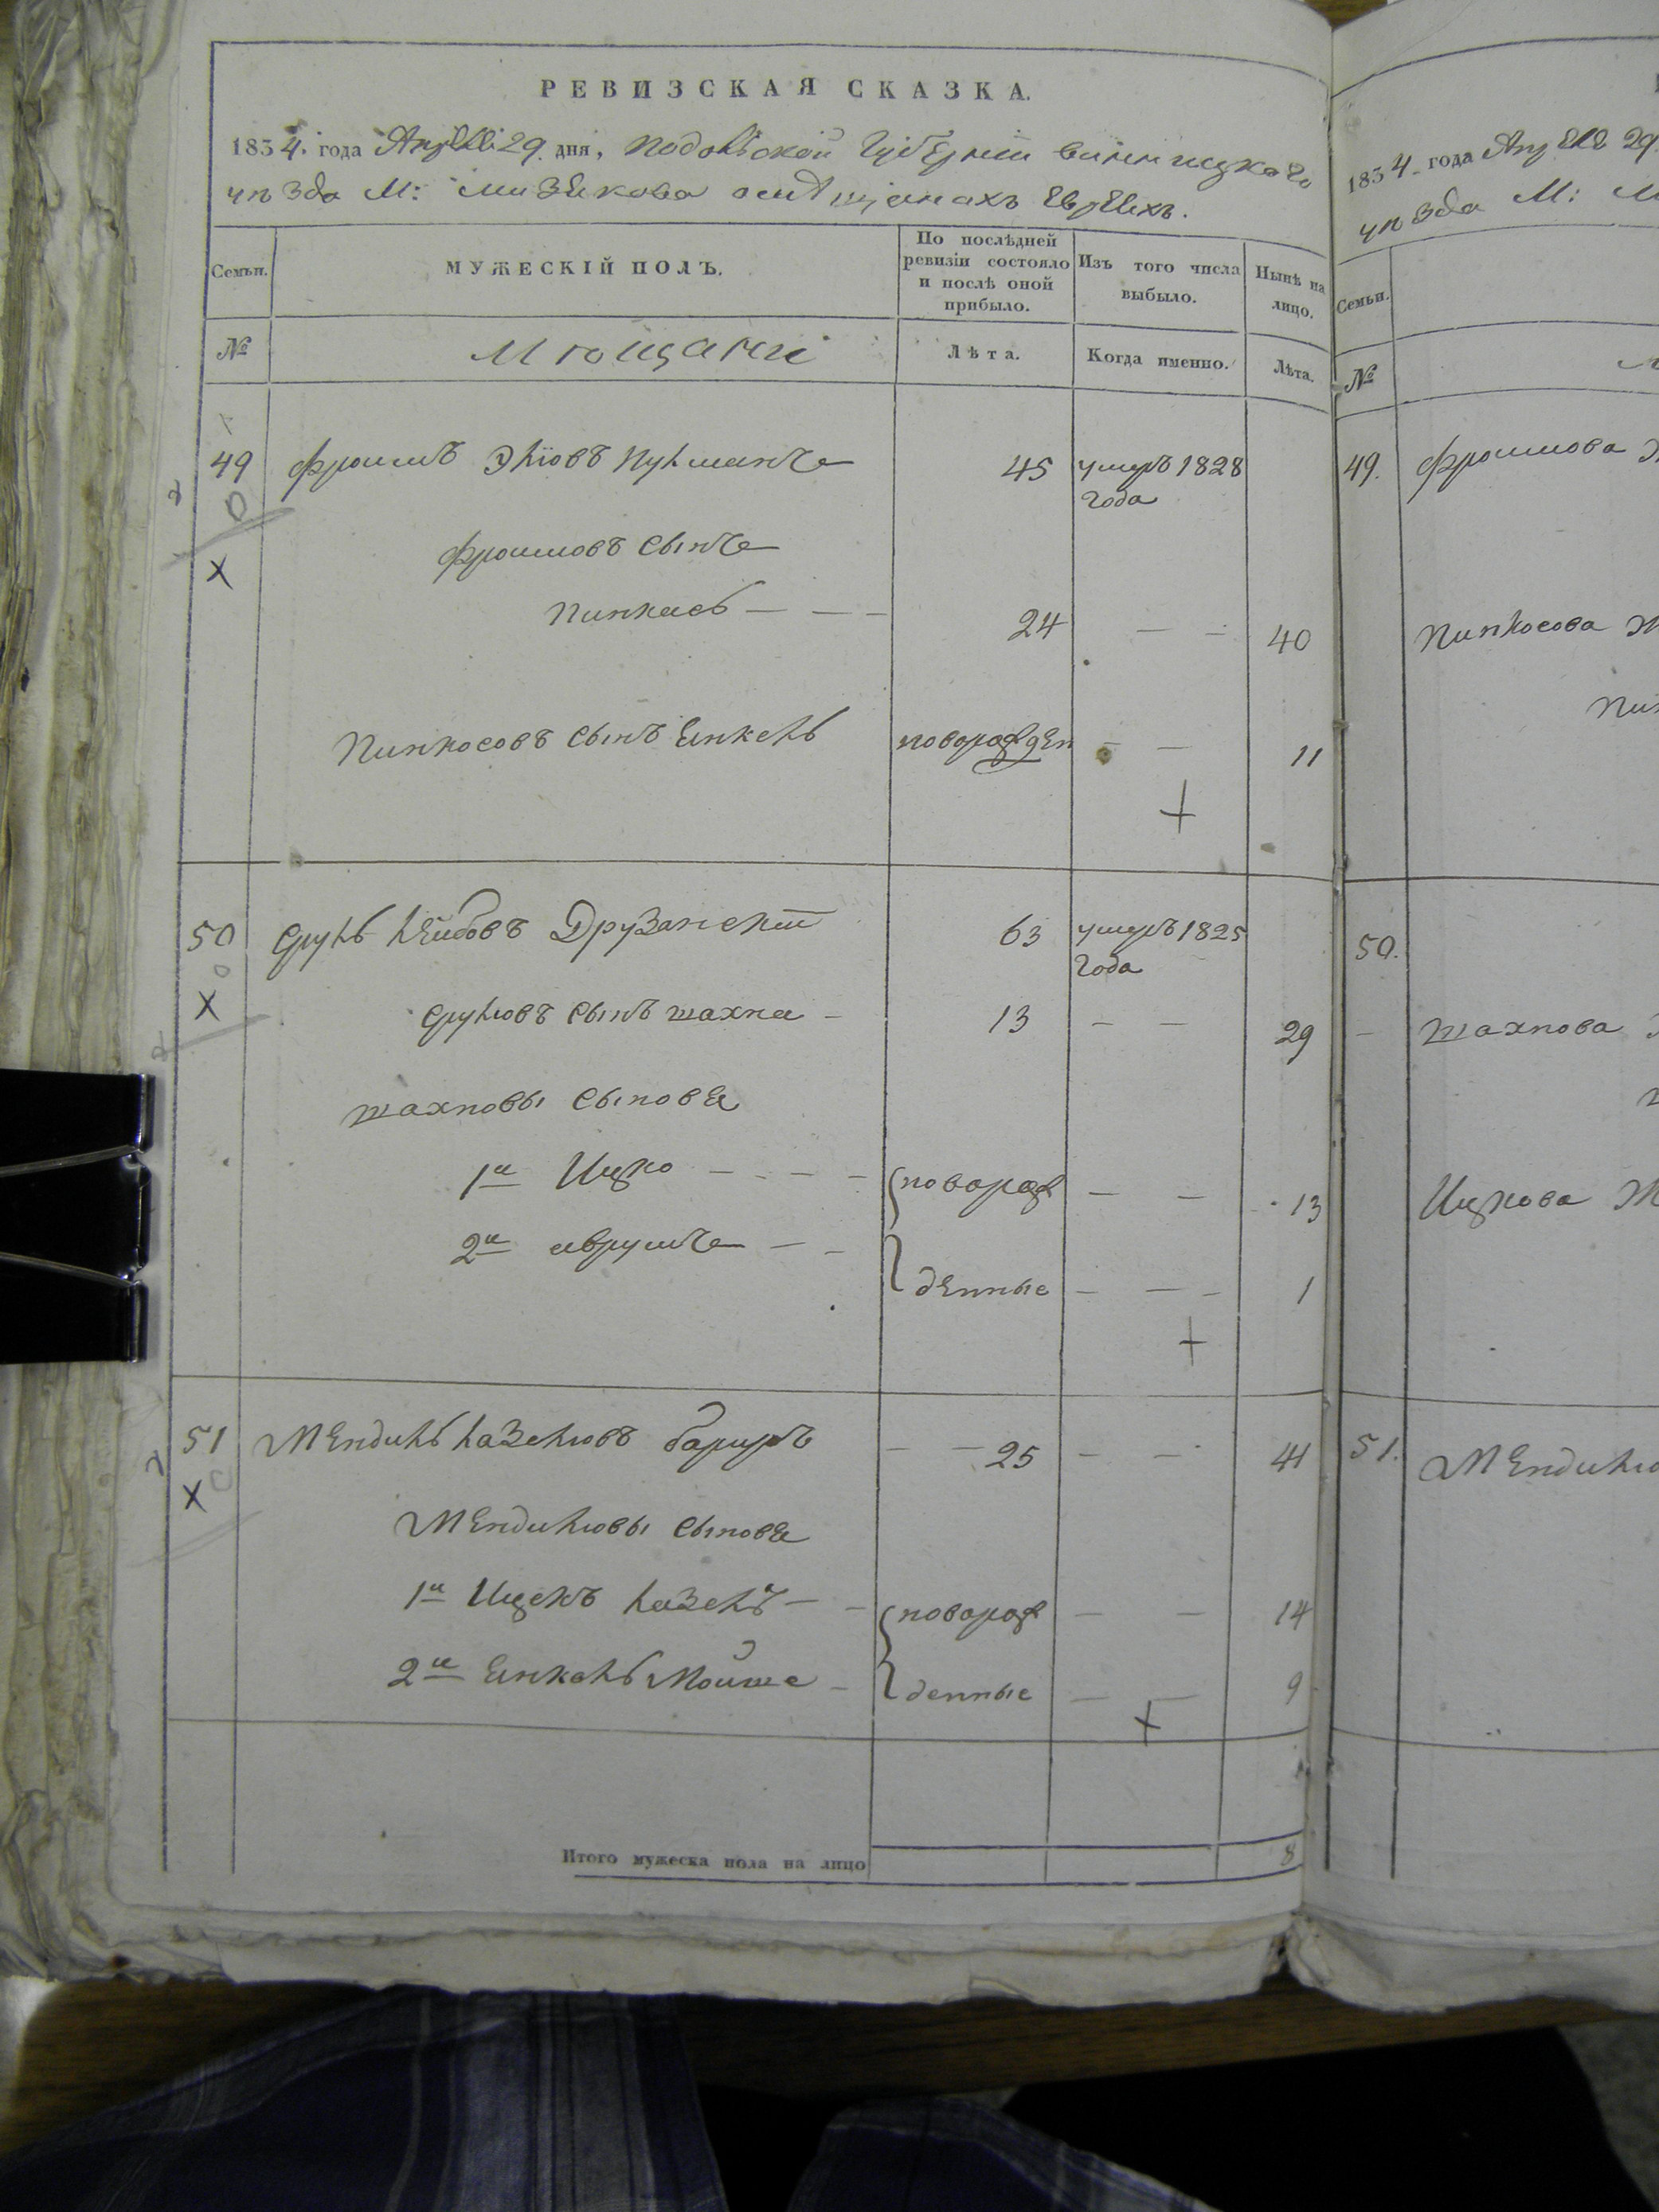 РЕВИЗСКАЯ СКАЗКА.
1834. года Апреля 29. дня, Подольской Губернии Винницкаго
уезда М: Мизякова о мещанахъ Евреихъ.
Семьи.
МУЖЕСКІЙ ПОЛЪ.
По послѣдней ревизіи состояло и послѣ оной прибыло.
Изъ того числа выбыло.
Нынѣ на лицо.
№
Мещане
Лѣта.
Когда именно.
Лѣта.
49 Фроимъ Пульманъ 45 умеръ 1828
года
Фроимовъ сынъ
Пинкасъ — — — 24 — — 40
Пинкосовъ сынъ Янкель новорожден — — 11
50 Сруль Лейбовъ Друзанскій 63 умеръ 1825
года
Срулювъ сынъ Шахна — 13 — — 29
Шахновы сыновя
1й Ицко — — — новорож — — 13
2й Аврумъ — — денные — — 1
51 Мендиль Лазелювъ — — 25 — — 41
Мендилювы сыновя
1й Ицекъ Лазель — — новорож — — 14
2й Янкель Мойше — денные — — 9
Итого мужеска пола на лицо 8
1834. года Апреля 29
уезда М:
Семьи.
№
49. Фроимова
Пинкосова
50.
Шахнова
Ицкова
51.